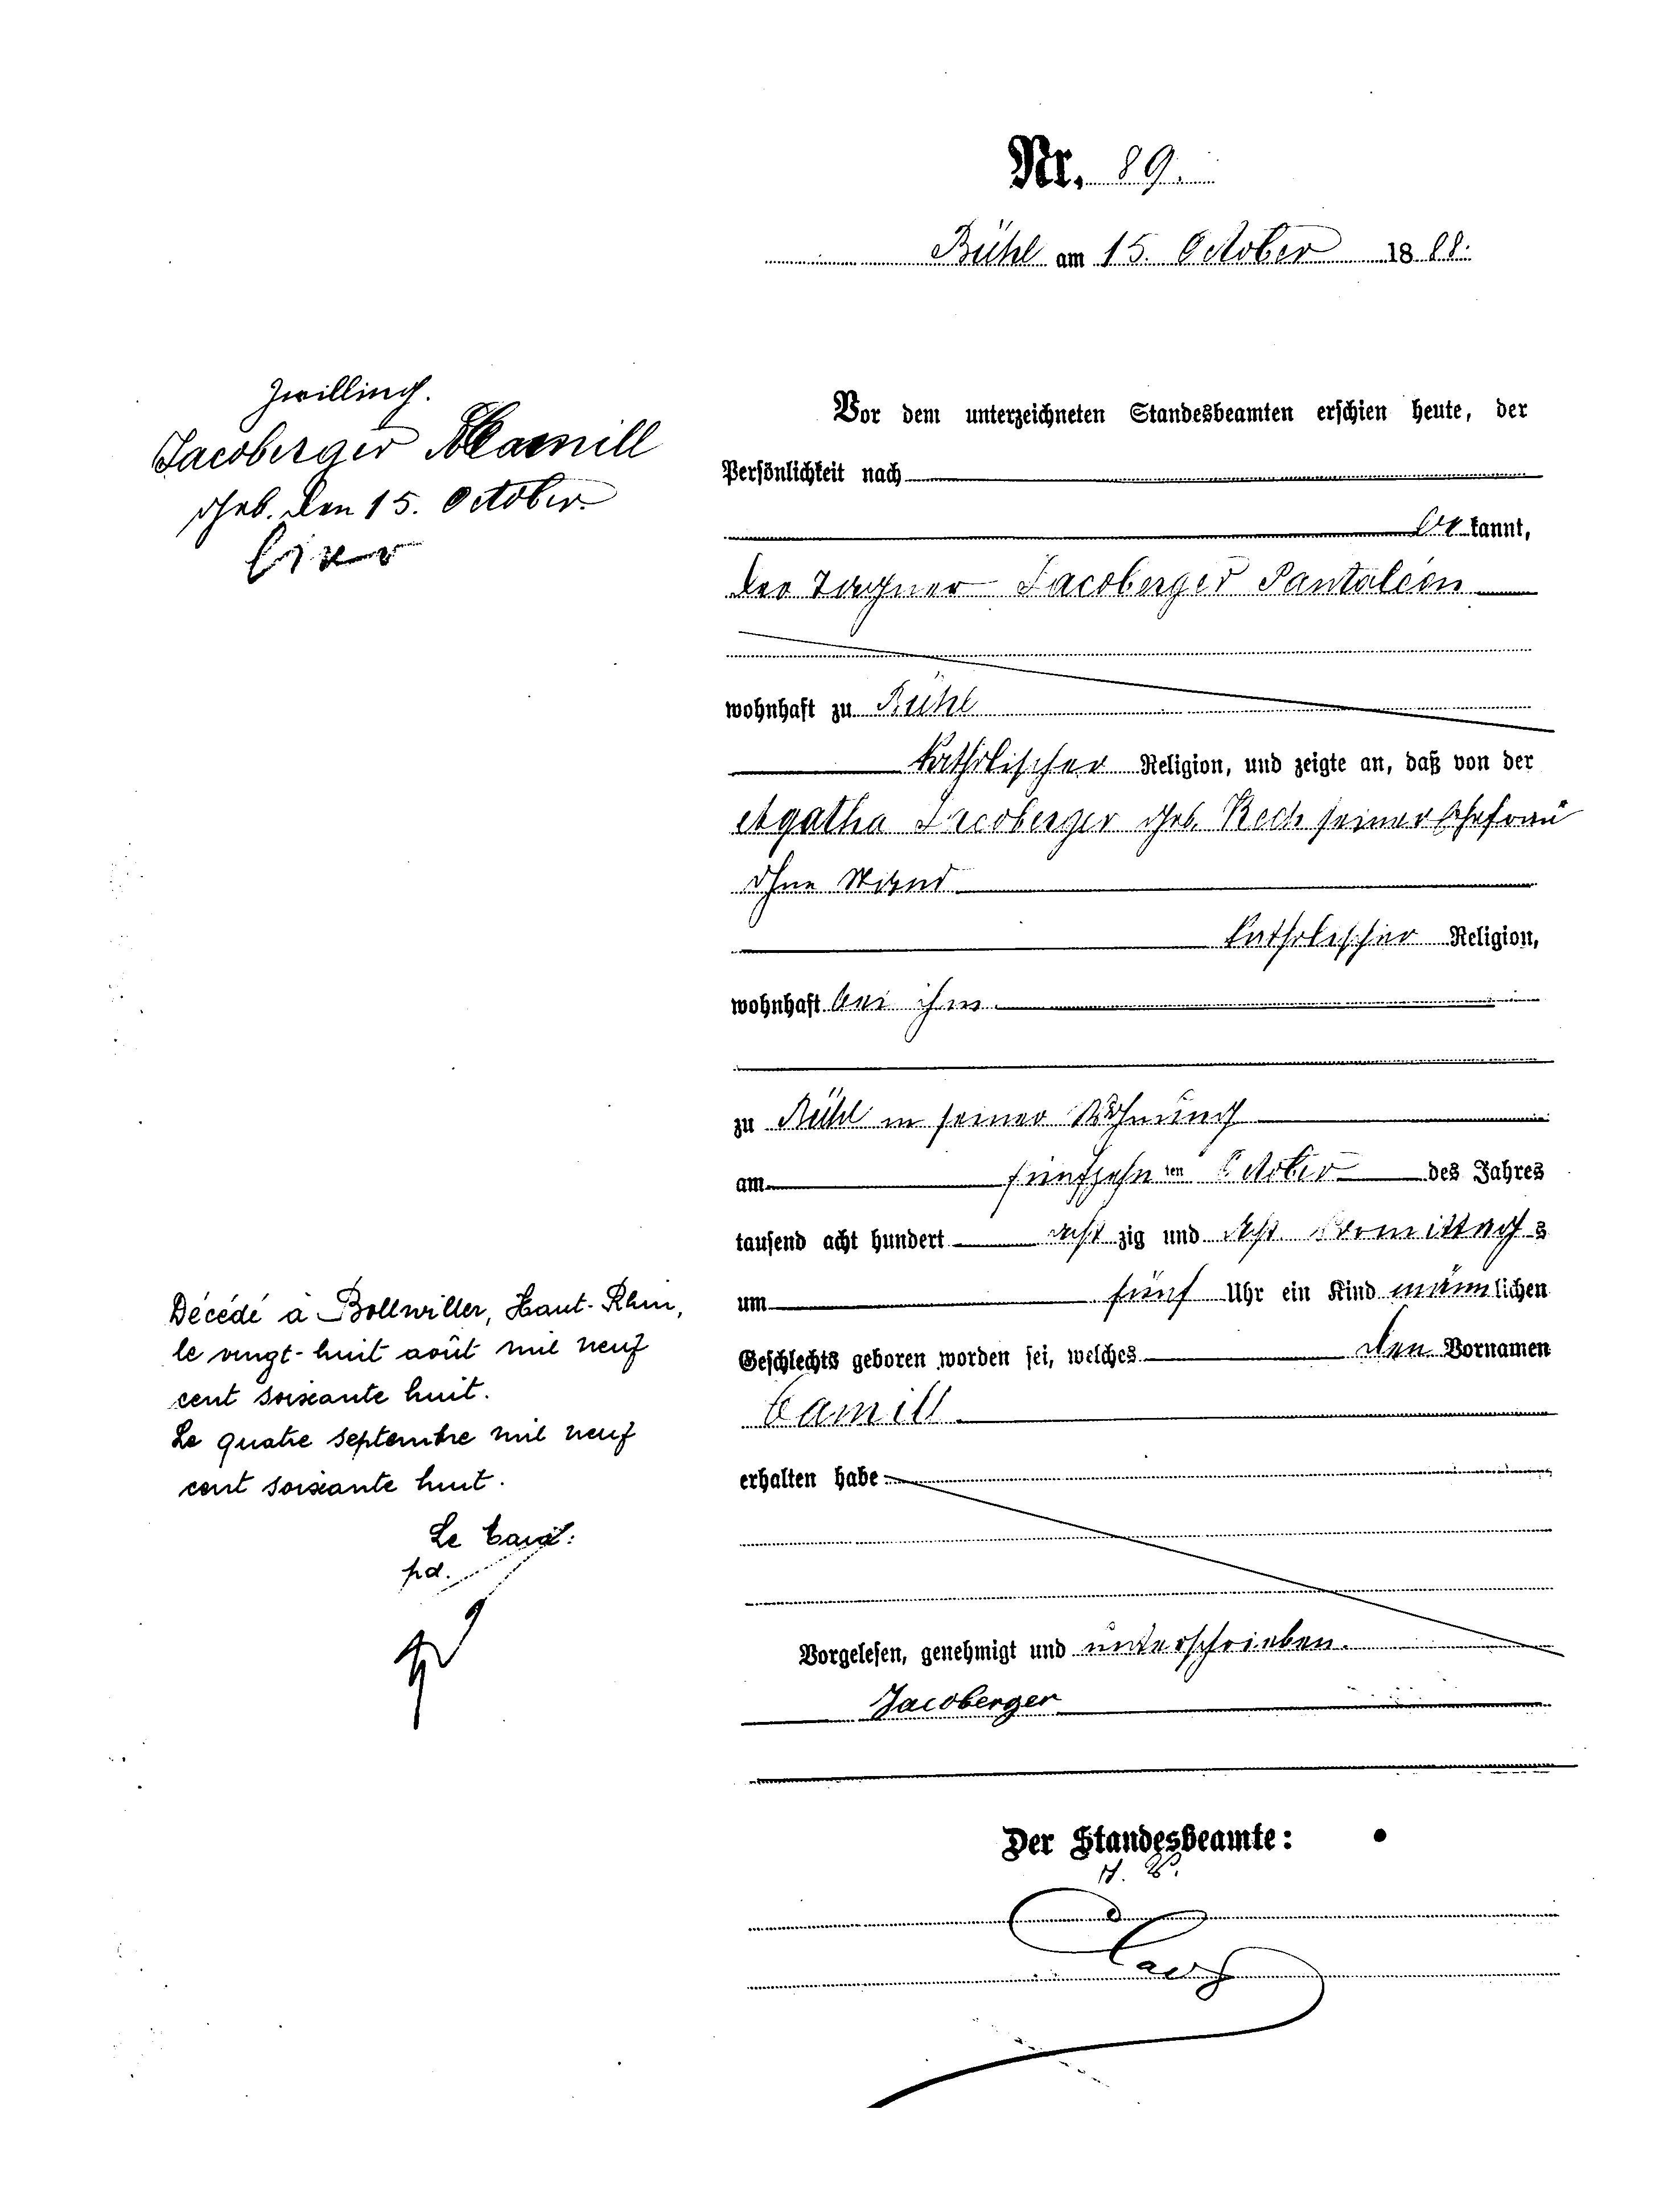 Nr. 89.
Bühl am 15. October 1888.
Zwilling.
Jacoberger Camill
geb. den 15. October.
Vor dem unterzeichneten Standesbeamten erschien heute, der
Persönlichkeit nach
bekannt,
der Tagner Jacoberger Pantaléon
wohnhaft zu Bühl
katholischer Religion, und zeigte an, daß von der
Agatha Jacoberger geb. Rech seiner Ehefrau
ohne Stand
katholischer Religion,
wohnhaft bei ihm
zu Bühl in seiner Wohnung
am fünfzehnten October des Jahres
tausend acht hundert achtzig und acht Vormittags
um fünf Uhr ein Kind männlichen
Geschlechts geboren worden sei, welches den Vornamen
Camill
erhalten habe
Vorgelesen, genehmigt und unterschrieben.
Jacoberger
Der Standesbeamte:
Décédé à Bollwiller, Haut-Rhin,
le vingt-huit août mil neuf
cent soixante huit.
Le quatre septembre mil neuf
cent soixante huit.
Le
pd.